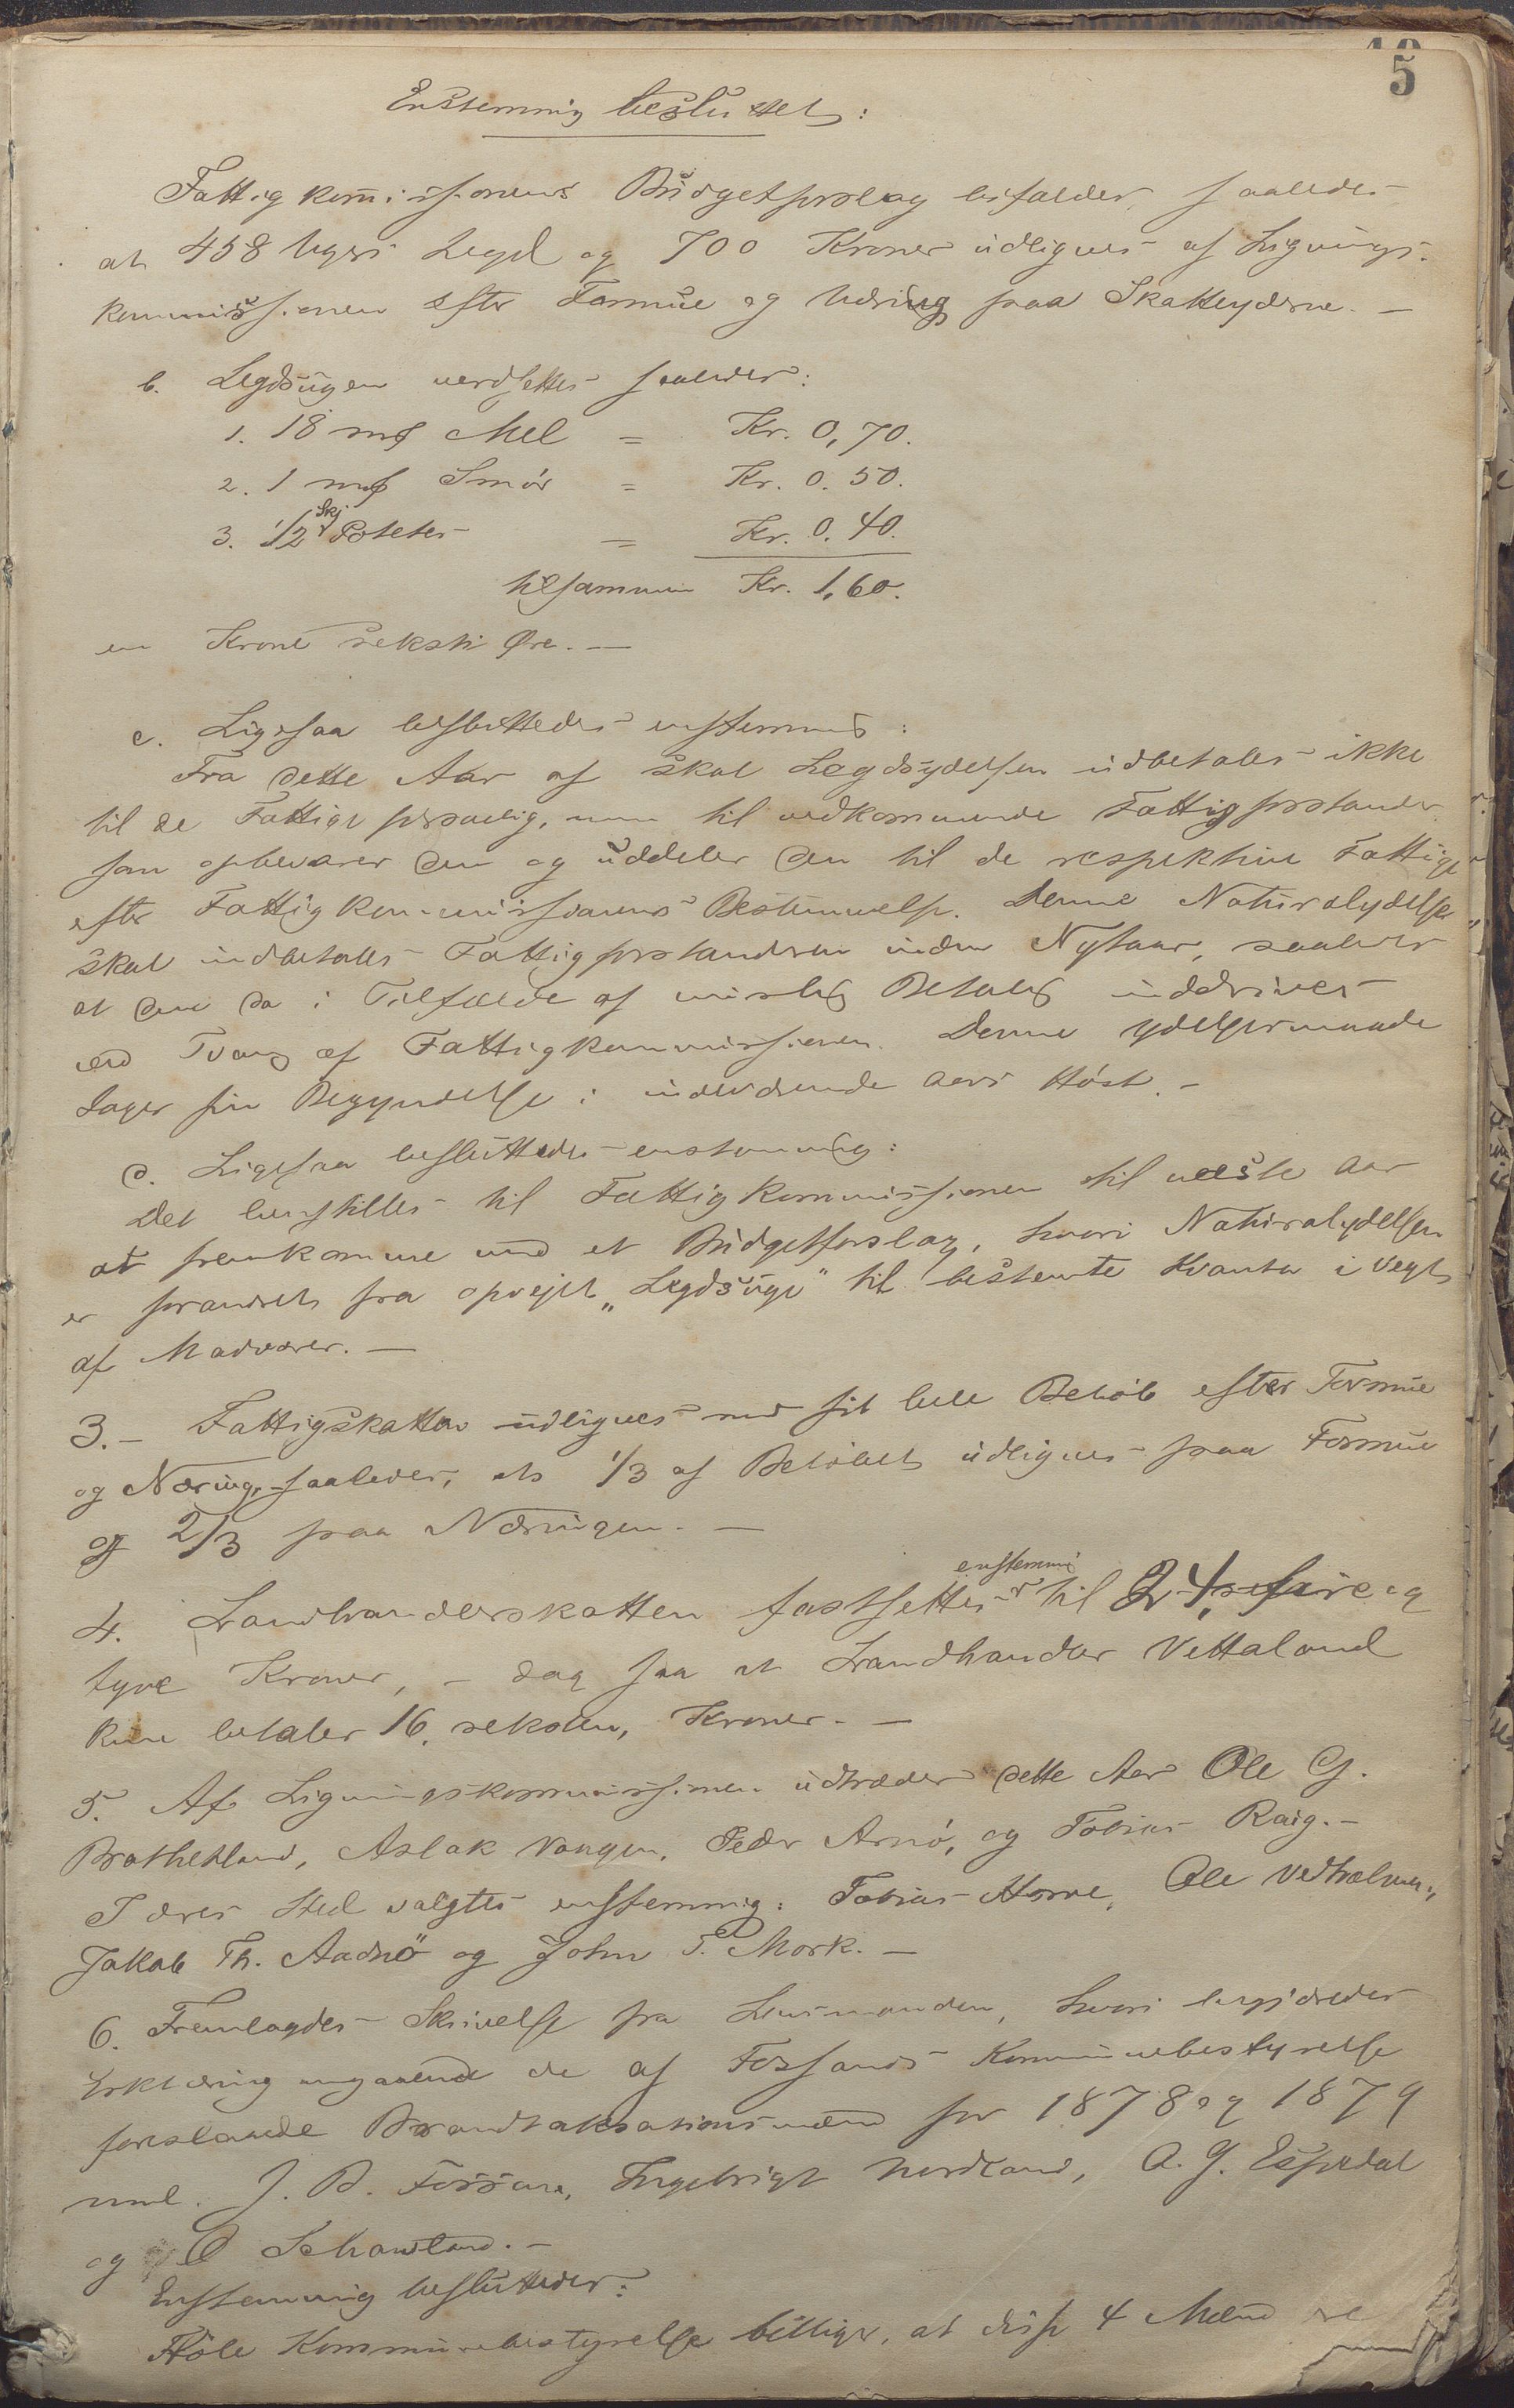 5
Enstemmig besluttet:
Fattigkommissionens Budgetforslag bifaldes saaledes
at 458 Uger Legd og 700 Kroner udlignes af Lignings-
kommissionen efter Formue og Næring paa Skatteyderne. —
b. Legdsugen verdsettes saaledes:
1. 18 mɧ Mel = Kr. 0,70.
2. 1 mɧ Smör = Kr. 0.50.
3. 1/2 Skj Poteter = Kr. 0.40.
tilsammen Kr. 1,60.
en Krone seksti Øre. —
c. Ligesaa besluttedes enstemmig:
Fra dette Aar af skal Legdsydelsen udbetales ikke
til de Fattige personlig, men til vedkommende Fattigforstander
som opbevarer den og uddeler den til de respektive Fattige
efter Fattigkommissionens Bestemmelse. Denne Naturalydelse
skal indbetales Fattigforstanderen inden Nytaar, saaledes
at den da i Tilfælde af mislig Betaling inddrives
ved Tvang af Fattigkommissionen. Denne Ydelsesmaade
tager sin Begyndelse i indeværende Aars Höst. —
d. Ligesaa besluttedes enstemmig:
Det henstilles til Fattigkommissionen til næste Aar
at fremkomme med et Budgetforslag, hvori Naturalydelsen
er forandret fra opvejet „Legdsuge" til bestemte Kvanta i Vegt
af Madvarer. —
3. — Fattigskatten udlignes med sit hele Belöb efter Formue
og Næring, saaledes, at 1/3 af Belöbet udlignes paa Formue
og 2/3 paa Næringen. —
4. Landhandlerskatten fastsettes enstemmig til 24, fire og
tyve Kroner, — dog saa at Landhandler Vettaland
kun betaler 16, seksten, Kroner. —
5. Af Ligningskommissionen udtræder dette Aar Ole G.
Bratthetland, Aslak Vangen, Peder Arnö, og Tobias Raig. —
I deres Sted valgtes enstemmig: Tobias Horve, Ole Vedholmen,
Jakob Th. Aadnö og John T. Mork. —
6. Fremlagdes Skrivelse fra Lensmanden, hvori begjæredes
Erklæring angaaende de af Fossands Kommunebestyrelse
foreslaaede Brandtaksationsmænd for 1878 og 1879
nml. J. B. Fossan, Ingebrigt Nordland, A. G. Espedal
og O Schawland. —
Enstemmig besluttedes:
Höle Kommunebestyrelse billiger, at disse 4 Mænd